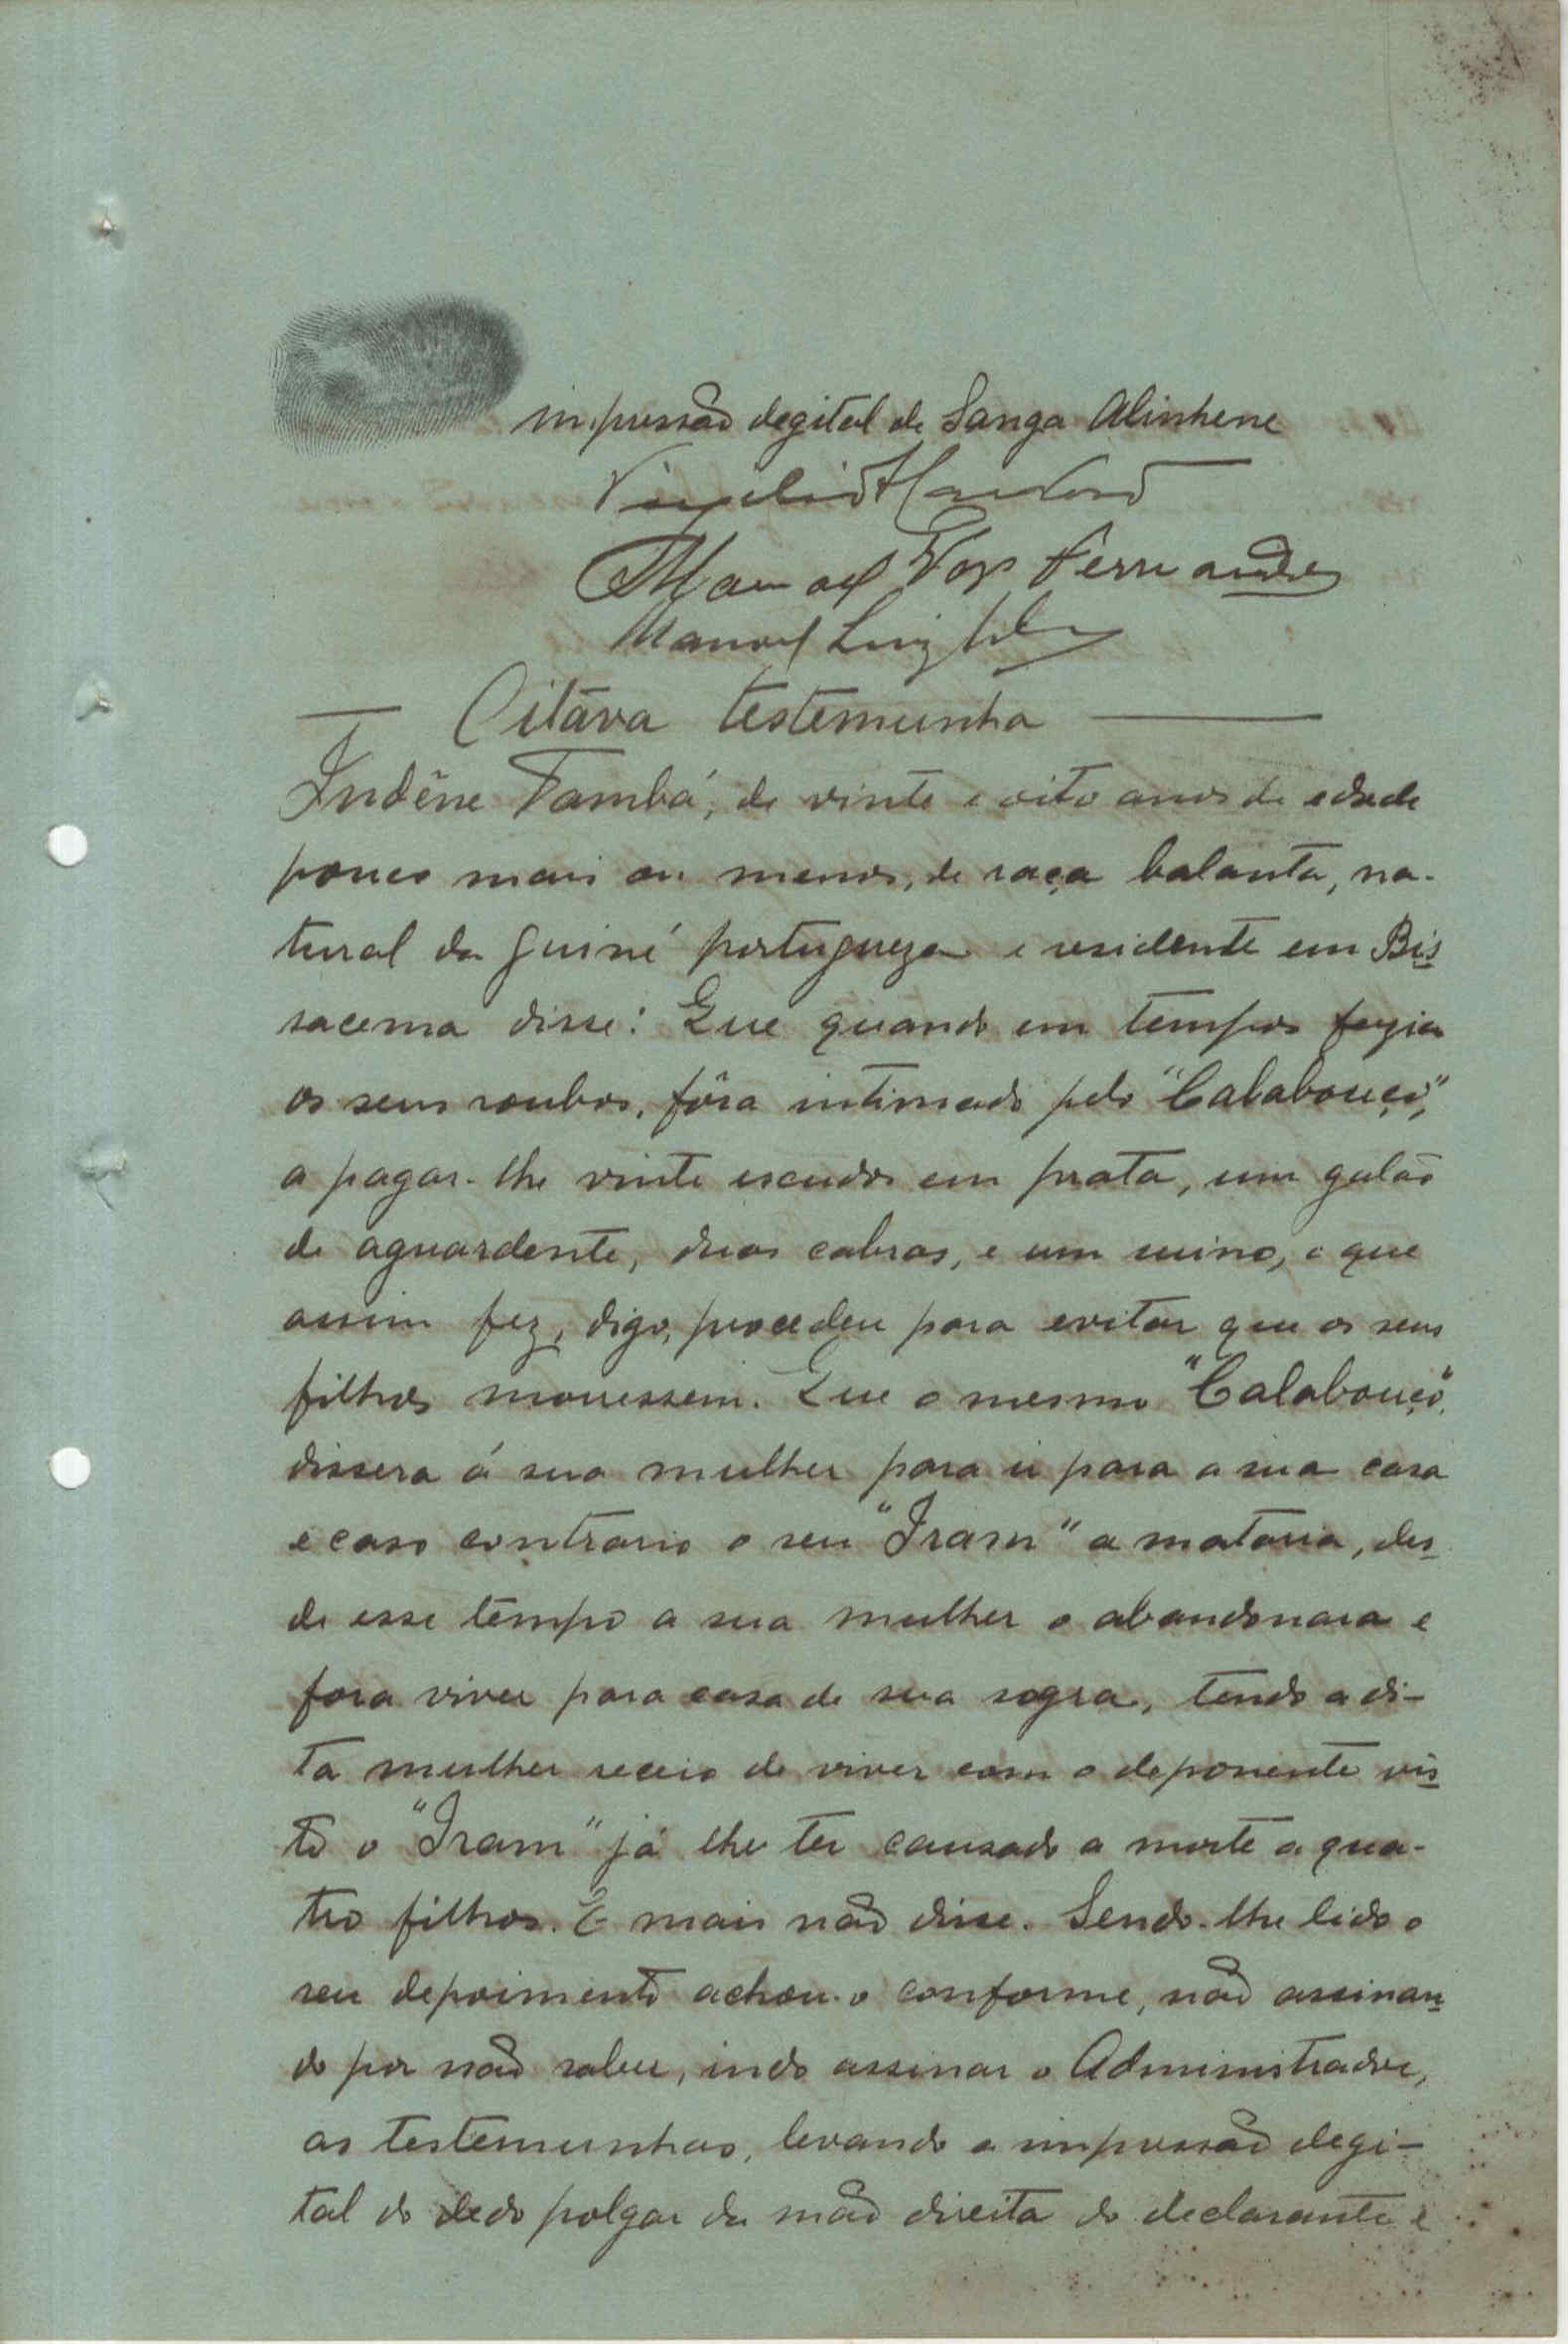 impressão degital de Sanga Alinhene
Manoel Vaz Fernandes
Manoel Luiz
Oitava testemunha
Indêne Tambá, de vinte e oito anos de edade
pouco mais ou menos, de raça balanta, na-
tural da Guiné portugueza e residente em Bis
sacema disse: Que quando em tempos fazia
os seus roubos, fôra intimado pelo "Calabouço",
a pagar-lhe vinte escudos em prata, um galão
de aguardente, duas cabras, e um suino, o que
assim fez, digo, procedeu para evitar que os seus
filhos morressem. Que o mesmo "Calabouço",
dissera á sua mulher para ir para a sua casa
e caso contrario o seu "Iram" a mataria, des
de esse tempo a sua mulher o abandonara e
fora viver para casa de sua sogra, tendo a di-
ta mulher receio de viver com o deponente vis
to o "Iram" já lhe ter causado a morte a qua-
tro filhos. E mais não disse. Sendo-lhe lido o
seu depoimento achou-o conforme, não assinan
do por não saber, indo assinar o Administrador,
as testemunhas, levando a impressão degi-
tal do dedo polgar da mão direita do declarante e